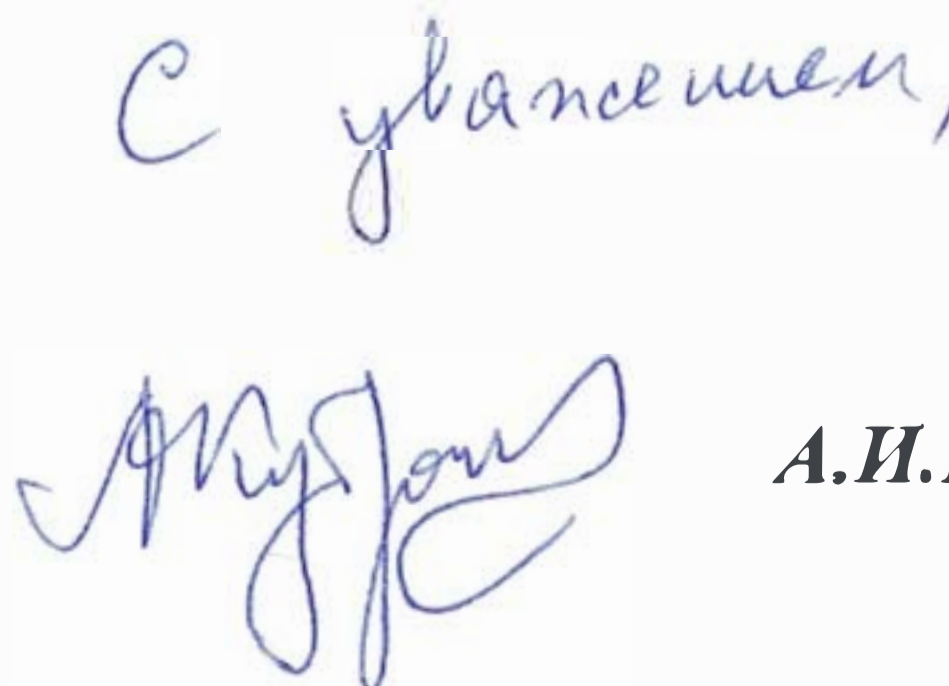 С уважением,
А.И.